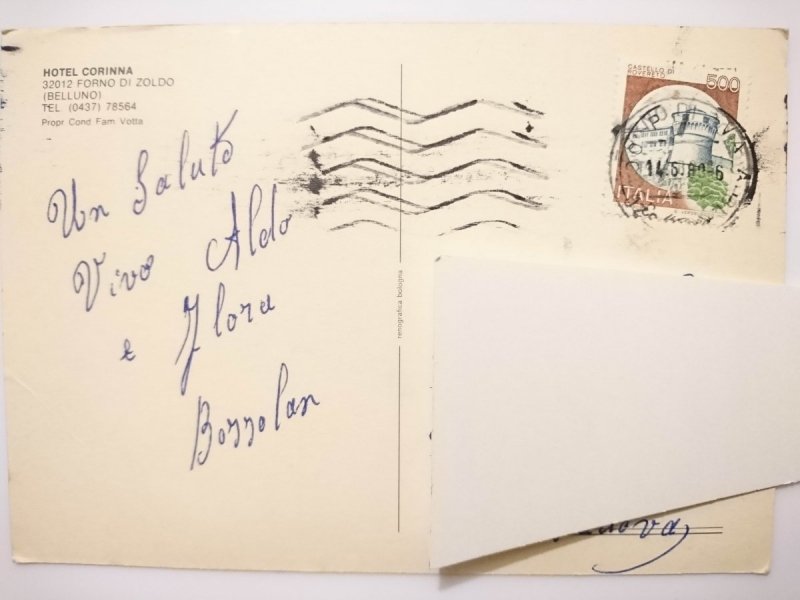 HOTEL CORINNA
32012 FORNO DI ZOLDO
(BELLUNO)
TEL. (0437) 78564
Propr. Cond. Fam. Votta
Un Saluto
Vivo Aldo
e Flora
Bozzolan
renografica bologna
CASTELLO DI
ROVERETO
500
ITALIA
14.5